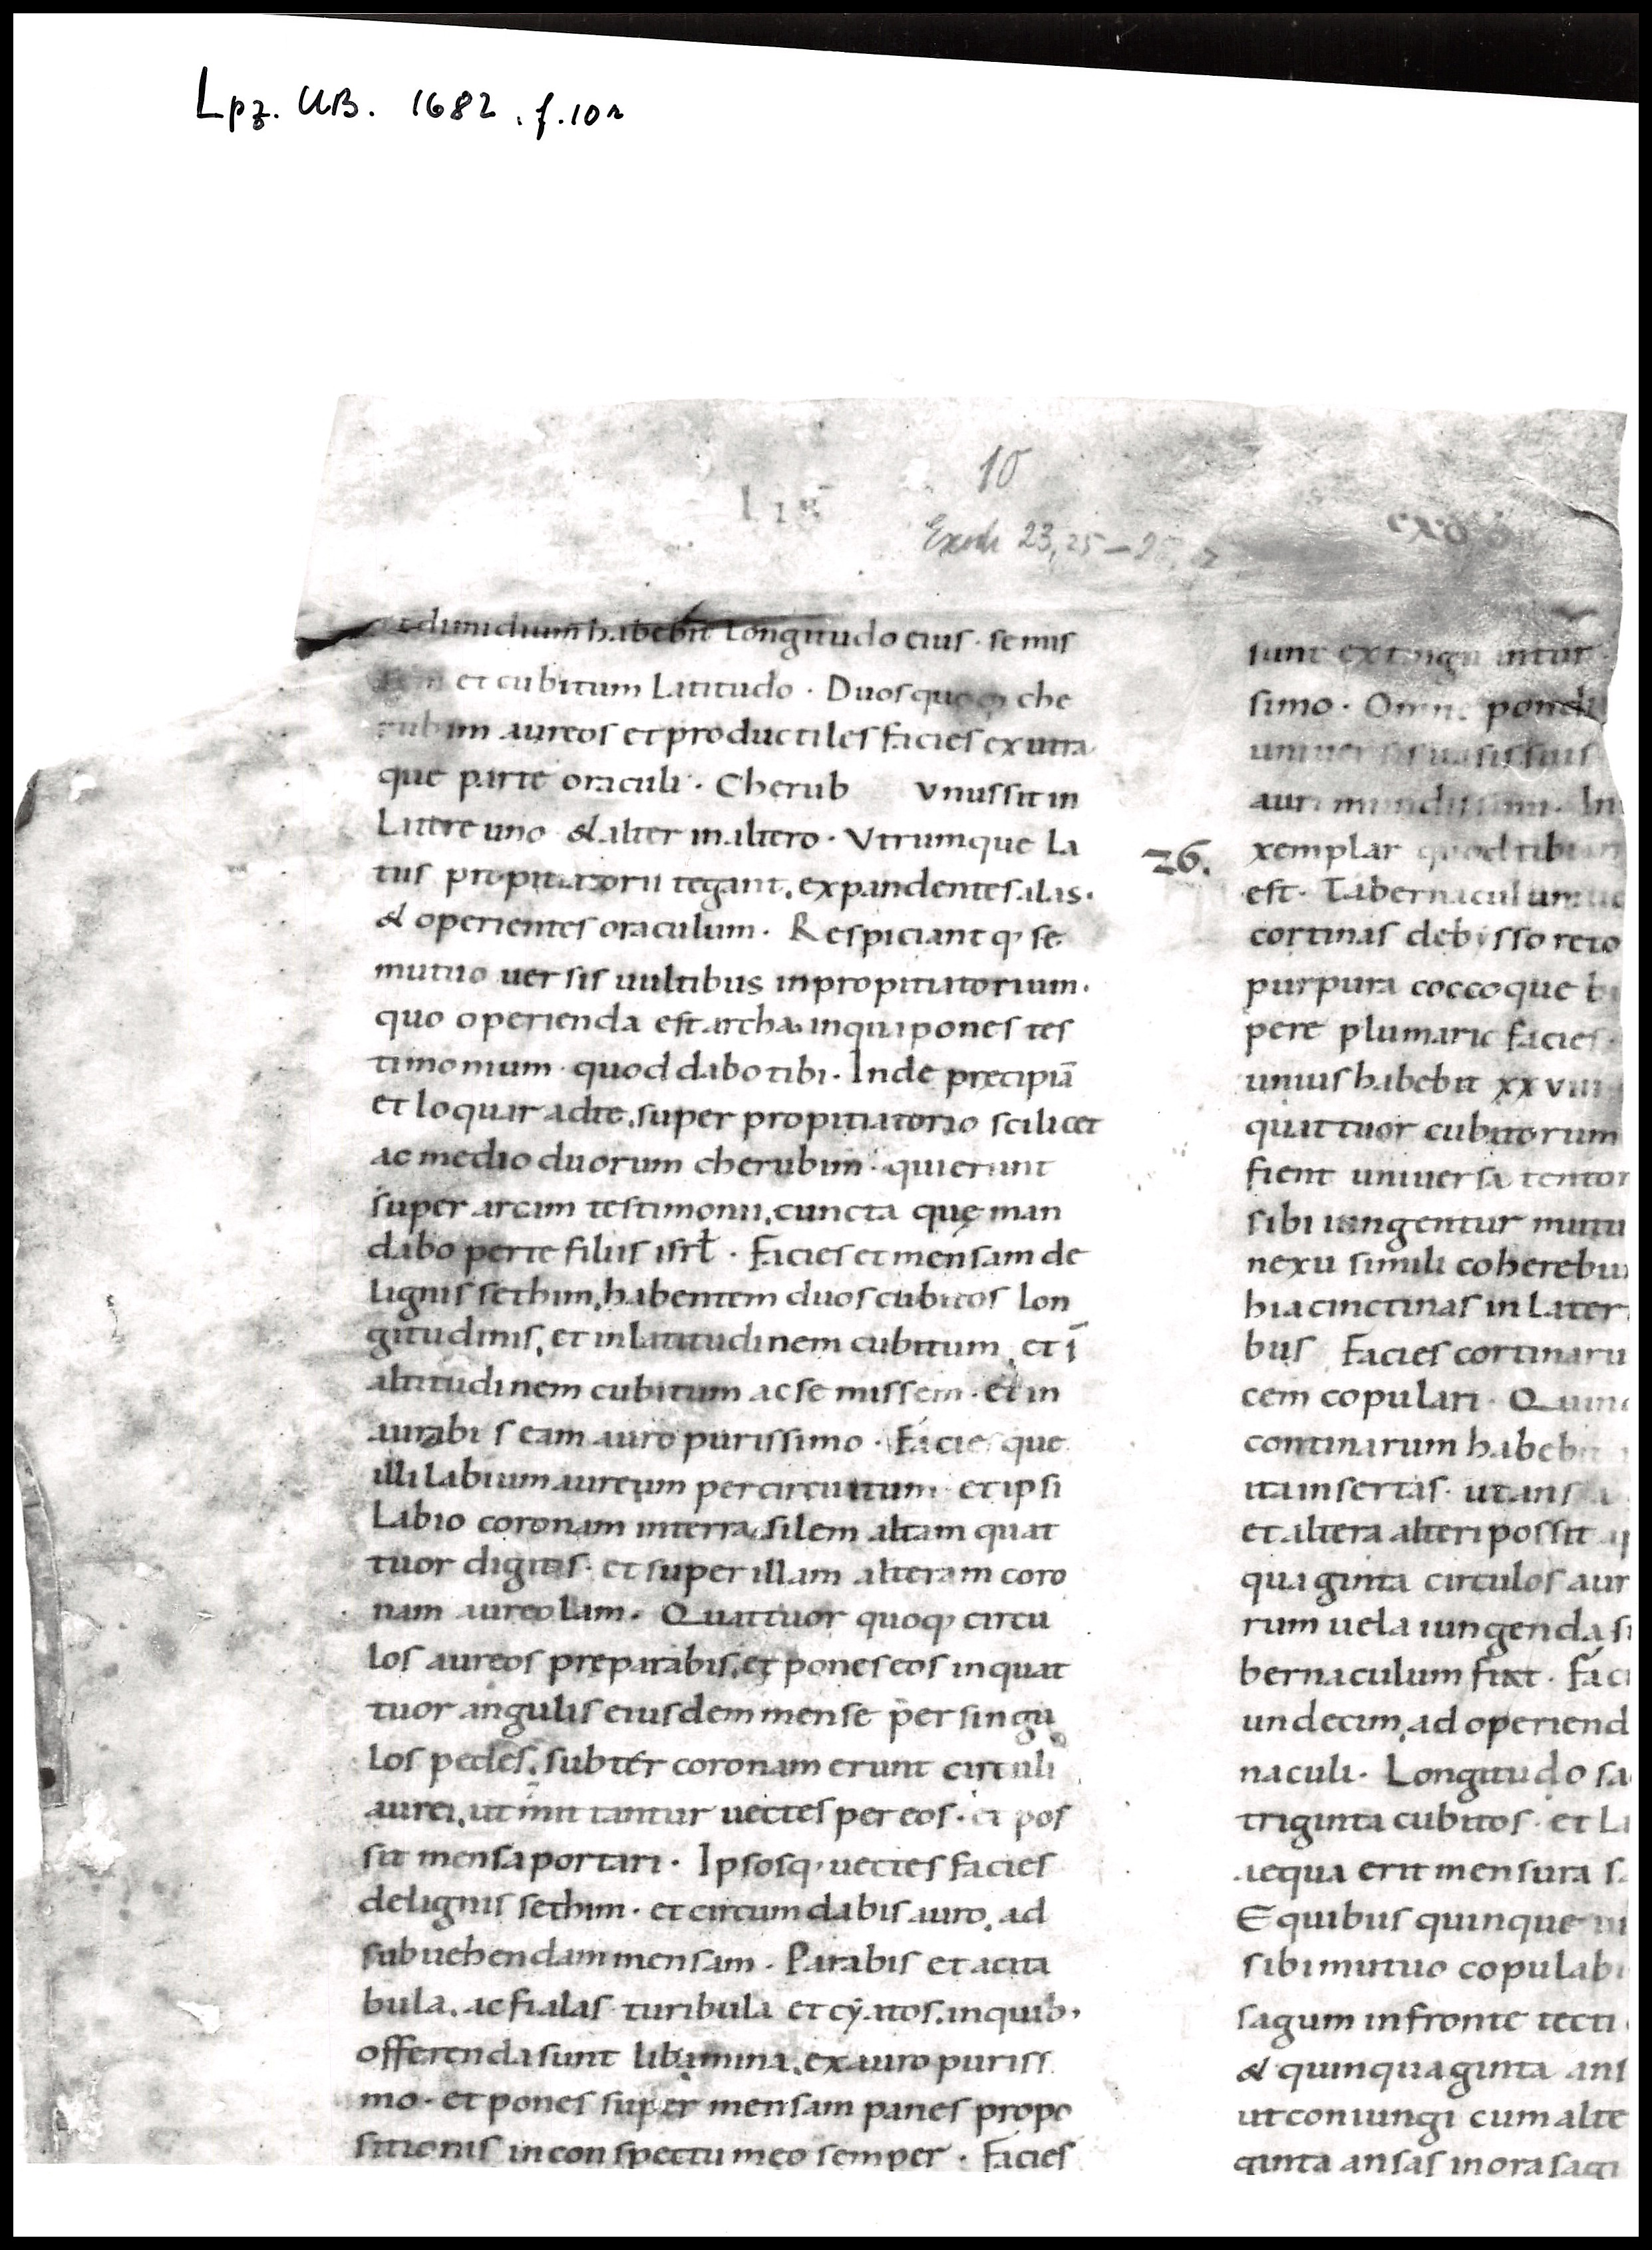 Lpz. UB. 1682. f. 10r
10
Exodi 23, 25 —
exod
et dimidium habebit Longitudo eius · semis
et cubitum Latitudo · Duos quoq; che
rubim aureos et productiles facies ex utra
que parte oraculi · Cherub vnus sit in
Latere uno & alter in altero · Vtrumque La
tus propitiatorii tegant, expandentes alas ·
& operientes oraculum · Respiciantq; se
mutuo uersis uultibus in propitiatorium ·
quo operienda est archa, in qua pones tes
timonium · quod dabo tibi · Inde precipiā
et loquar ad te, super propitiatorio scilicet
ac medio duorum cherubim · qui erunt
super arcam testimonii, cuncta quę man
dabo per te filiis isrł · Facies et mensam de
Lignis sethim, habentem duos cubitos lon
gitudinis, et in latitudinem cubitum, et ī
altitudinem cubitum ac semissem · et in
aurabis eam auro purissimo · Faciesque
illi Labium aureum per circuitum · et ipsi
Labio coronam interrasilem altam quat
tuor digitis · et super illam alteram coro
nam aureolam · Quattuor quoq; circu
Los aureos prępatabis, et pones eos in quat
tuor angulis eiusdem mense per singu
Los pedes, subter coronam erunt circuli
aurei, ut mittantur uectes per eos · et pos
sit mensa portari · Ipsosq; uectes facies
de lignis sethim · et circumdabis auro, ad
subuehendam mensam · Parabis et aceta
bula, ac fialas · turibula et cyatos, in quib;
offerenda sunt libamina, ex auro puriss
mo · et pones super mensam panes propo
sitionis in conspectu meo semper · Facies
26.
sunt ex
simo · Omne pond
uniuersis uasis suis
auri mundissimi · In
xemplar quod tibi
est · Tabernaculum
cortinas de bysso reto
purpura coccoque bi
pere plumario facies ·
unius habebit xxviii
quattuor cubitorum
fient uniuersa tentor
sibi iungentur mutu
nexu simili coherebu
hiacinctinas in Later
bus Facies cortinaru
cem copulari · Quin
cortinarum habebit
ita insertas · ut ansa
et altera alteri possit
quaginta circulos aur
rum uela iungenda s
bernaculum fiat · Faci
undecim, ad operiend
naculi · Longitudo sa
triginta cubitos · et La
aequa erit mensura s
E quibus quinque
sibi mutuo copulab
sagum in fronte tecti
& quinquaginta ans
ut coniungi cum alte
ginta ansas in ora sagi